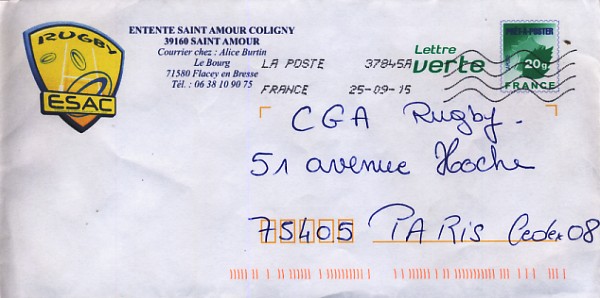 RUGBY
ESAC
ENTENTE SAINT AMOUR COLIGNY
39160 SAINT AMOUR
Courrier chez : Alice Burtin
Le Bourg
71580 Flacey en Bresse
Tél. : 06 38 10 90 75
LA POSTE 37845A
FRANCE 25-09-15
Lettre
verte
PRÊT-À-POSTER
20g
FRANCE
CGA Rugby.
51 avenue Hoche
75405 PARIS Cedex 08